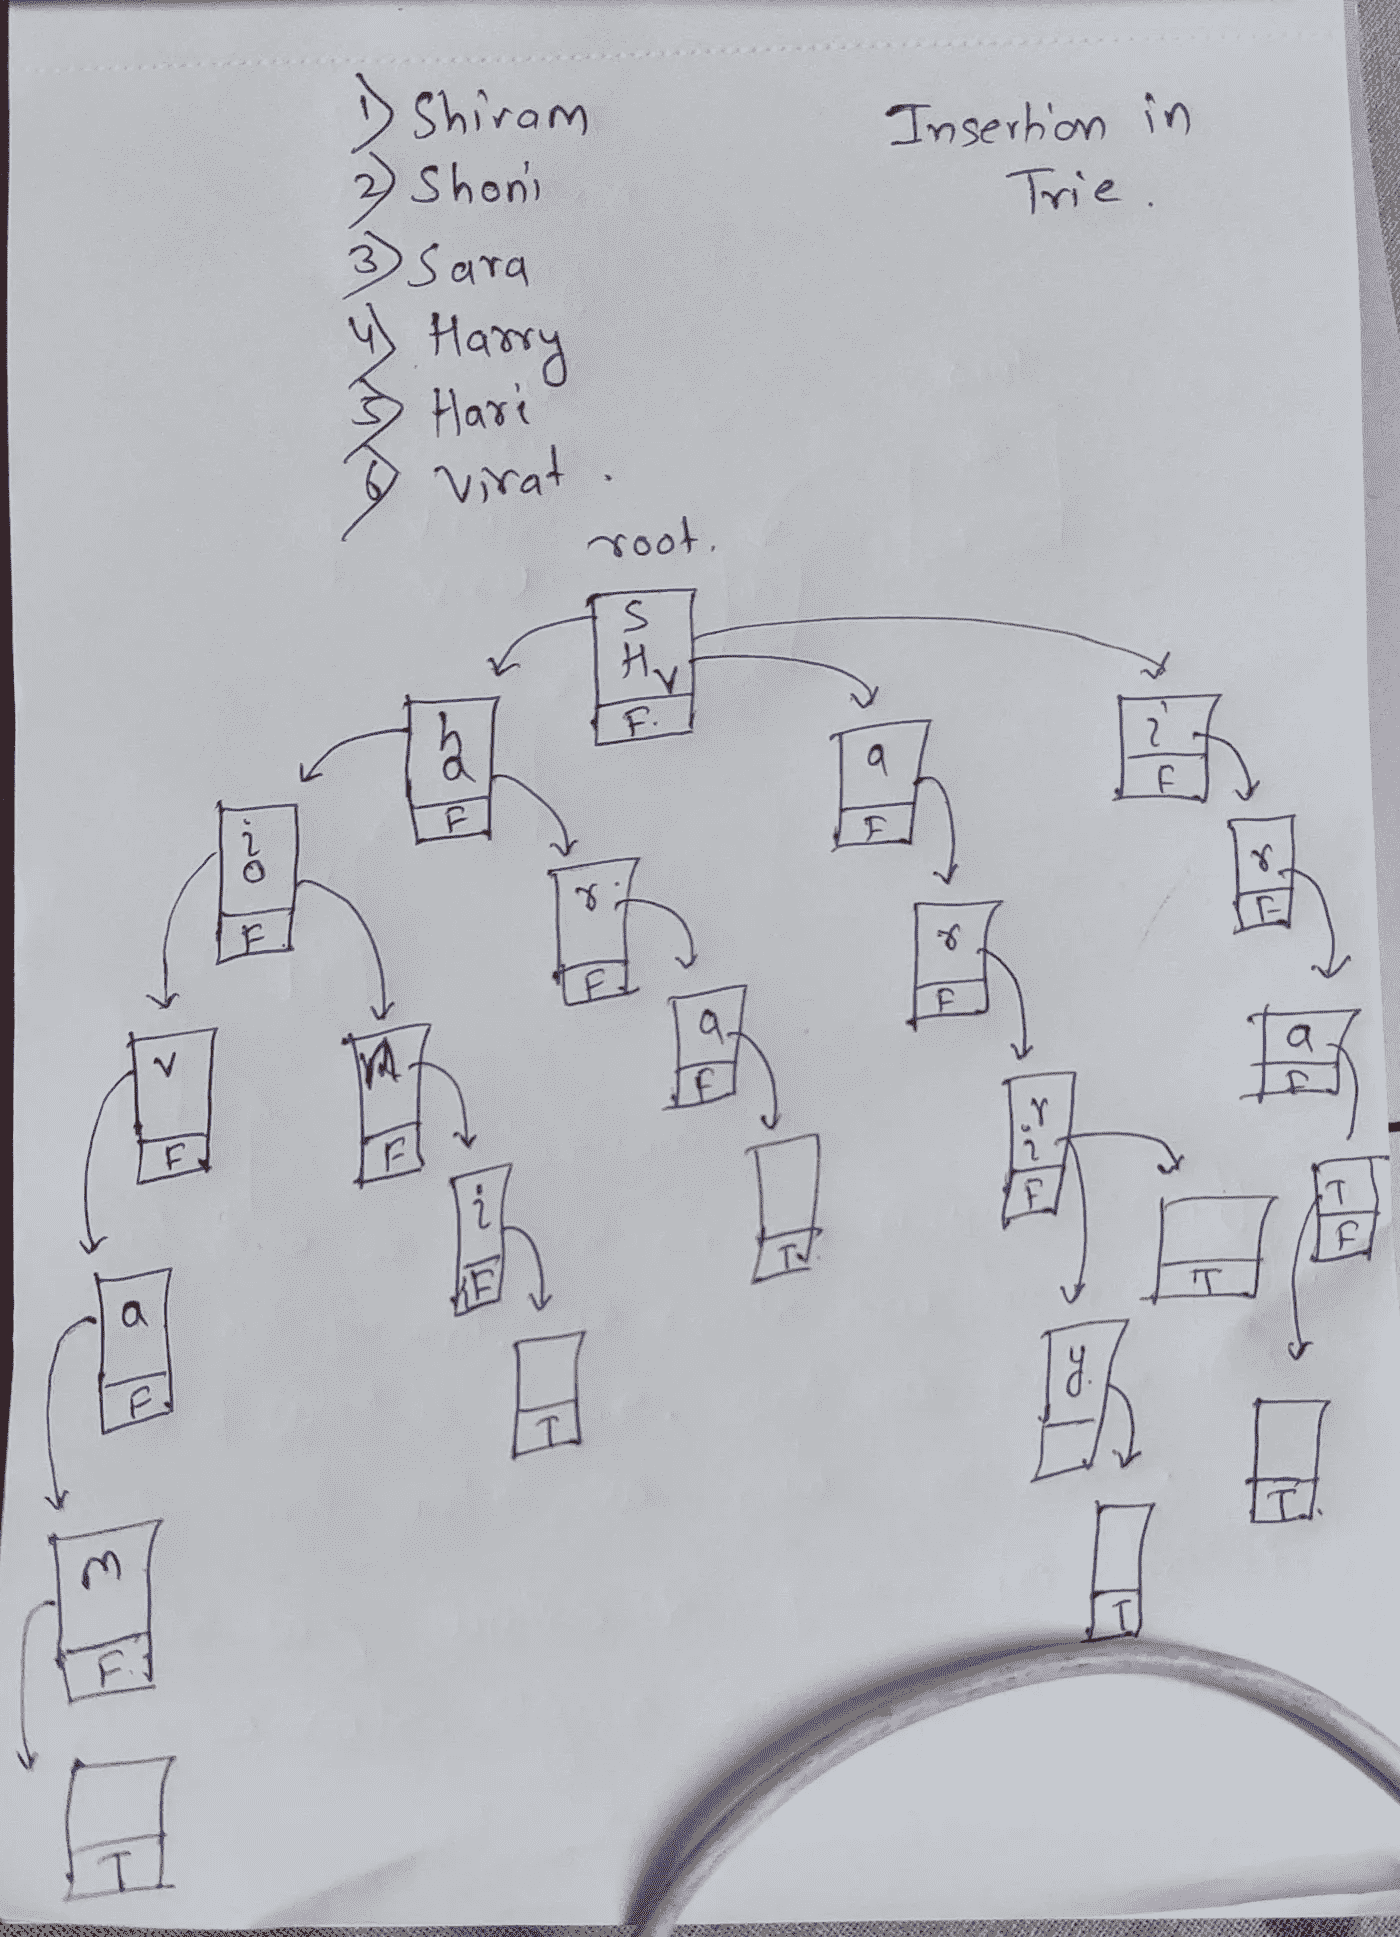 1) Shivam
2) Shoni
3) Sara
4) Harry
5) Hari
6) Virat.
Insertion in
Trie.
root.
S
H
V
F.
h
a
F
a
F
i
F
i
o
F
r
F
r
F
r
F
v
F
F
a
F
r
i
F
a
F
i
F
T
T
T
F
a
F
T
y.
T
m
F.
T
T